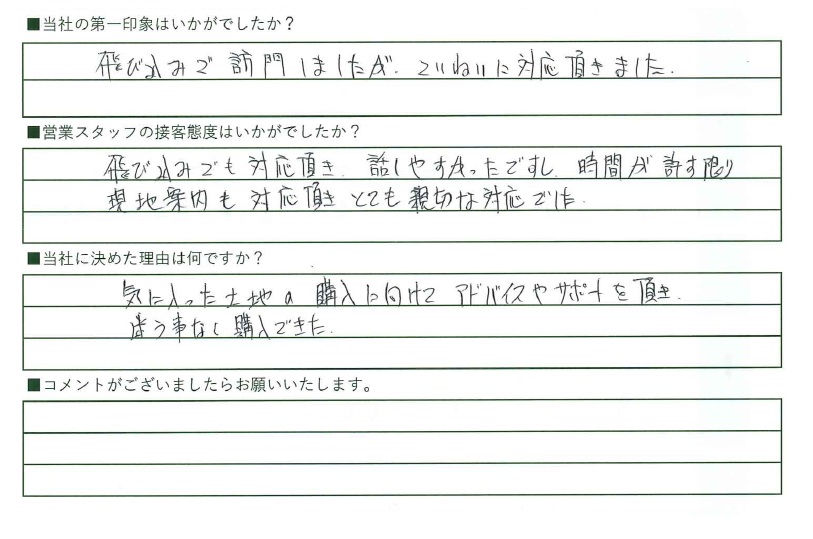 ■当社の第一印象はいかがでしたか？
飛び込みで訪問しましたが、ていねいに対応頂きました。
■営業スタッフの接客態度はいかがでしたか？
飛び込みでも対応頂き、話しやすかったですし、時間が許す限り
現地案内も対応頂きとても親切な対応でした。
■当社に決めた理由は何ですか？
気に入った土地の購入に向けてアドバイスやサポートを頂き、
迷う事なく購入できた。
■コメントがございましたらお願いいたします。